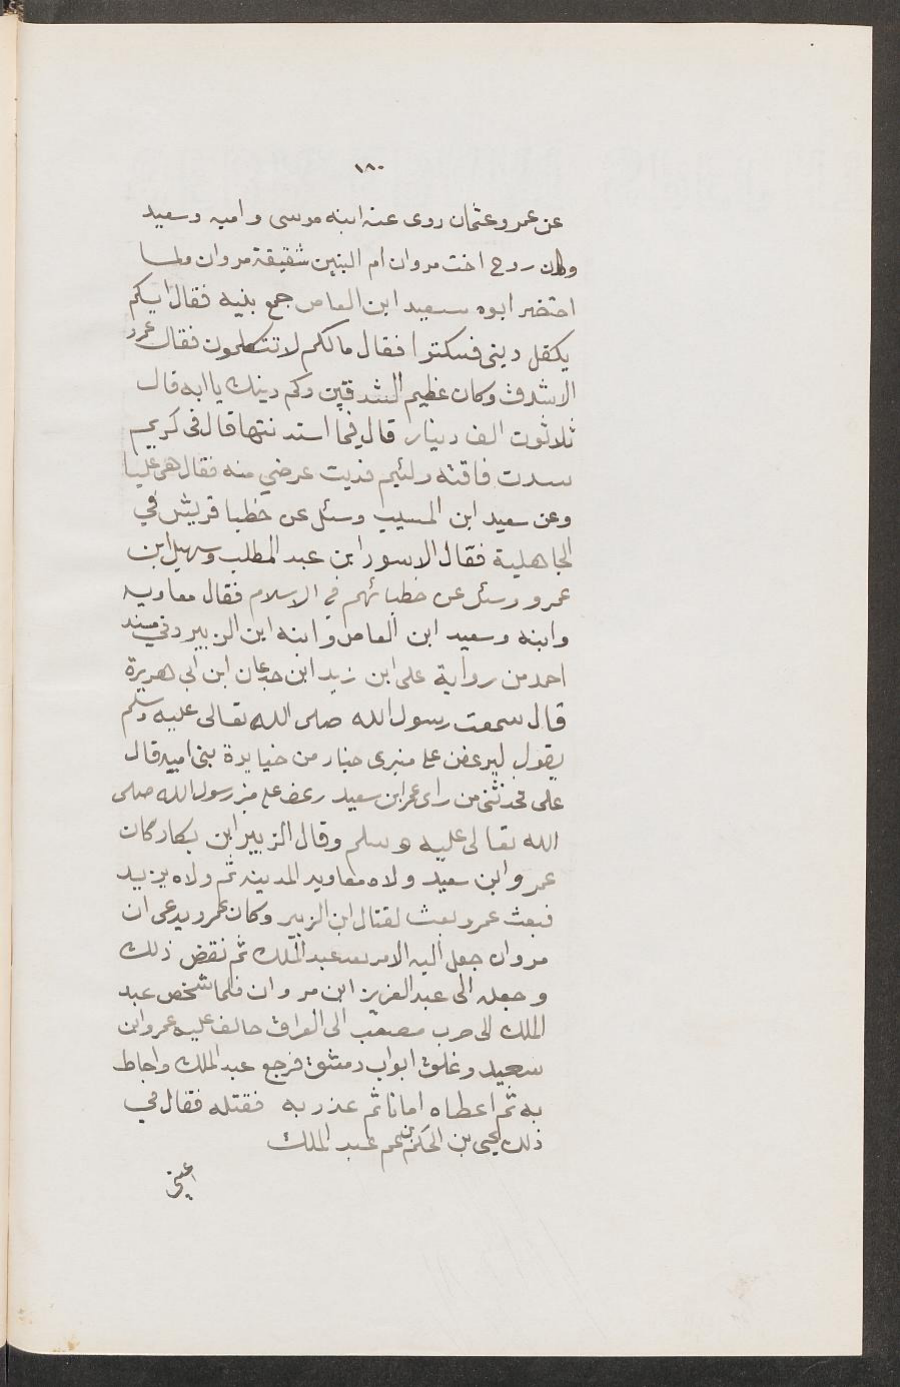 ١٨٠
عن عمر وعثمان روى عنه ابنه موسى واميه وسعيد
وكان روح اخت مروان ام البنين شقيقة مروان ولما
احتضر ابوه سعيد ابن العاص جمع بنيه فقال ايكم
يكفل ديني فسكتوا فقال مالكم لا تتكلمون فقال عمرو
الاشدق وكان عظيم الشدقين وكم دينك يا ابه قال
ثلاثون الف دينار قال فيما استدنتها قال في كريم
سدت فاقته ولئيم فديت عرضي منه فقال هي عليا
وعن سعيد ابن المسيب وسئل عن خطبا قريش في
الجاهلية فقال الاسود ابن عبد المطلب وسهيل ابن
عمرو وسئل عن خطبائهم في الاسلام فقال معاويه
وابنه وسعيد ابن العاص وابنه ابن الزبير وفي مسند
احمد من رواية على ابن زيد ابن جدعان ابن ابي هريرة
قال سمعت رسول الله صلى الله تعالى عليه وسلم
يقول ليرعفن على منبرى جبار من جبابرة بنى اميه قال
على فحدثني من راى عمر ابن سعيد رعف على منبر رسول الله صلى
الله تعالى عليه وسلم وقال الزبير ابن بكار كان
عمرو ابن سعيد ولاه معاويه المدينه ثم ولاه يزيد
فبعث عمرو بعث لقتال ابن الزبير وكان عمرو يدعى ان
مروان جعل اليه الامر بعد عبد الملك ثم نقض ذلك
وجعله الى عبد العزيز ابن مروان فلما شخص عبد
الملك الى حرب مصعب الى العراق خالف عليه عمرو ابن
سعيد وغلق ابواب دمشق فرجع عبد الملك واحاط
به ثم اعطاه امانا ثم غدر به فقتله فقال في
ذلك يحيى بن الحكم بن عم عبد الملك
اعيني